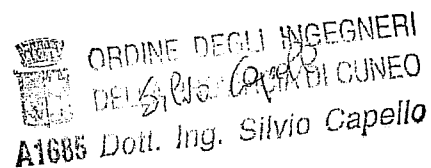 ORDINE DEGLI INGEGNERI
DELLA PROVINCIA DI CUNEO
Silvio Capello
A1685 Dott. Ing. Silvio Capello